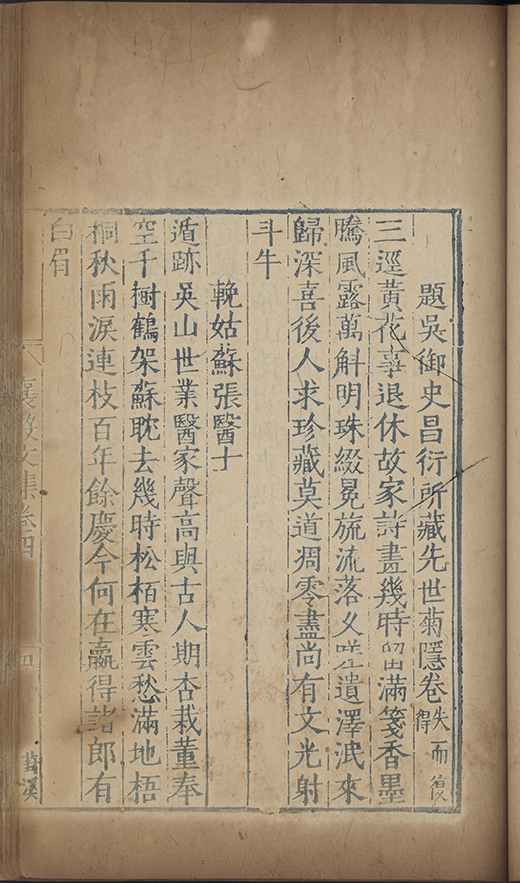 題吳御史昌衍所藏先世菊隱卷失而復得
三逕黃花事退休故家詩畫幾時留滿箋香墨
騰風露萬斛明珠綴冕旒流落久嗟遺澤泯來
歸深喜後人求珍藏莫道凋零盡尚有文光射
斗牛
輓姑蘇張醫士
遁跡吳山世業醫家聲高與古人期杏栽董奉
空千樹鶴架蘇耽去幾時松栢寒雲愁滿地梧
桐秋雨淚連枝百年餘慶今何在贏得諸郎有
白眉
襄毅文集卷四